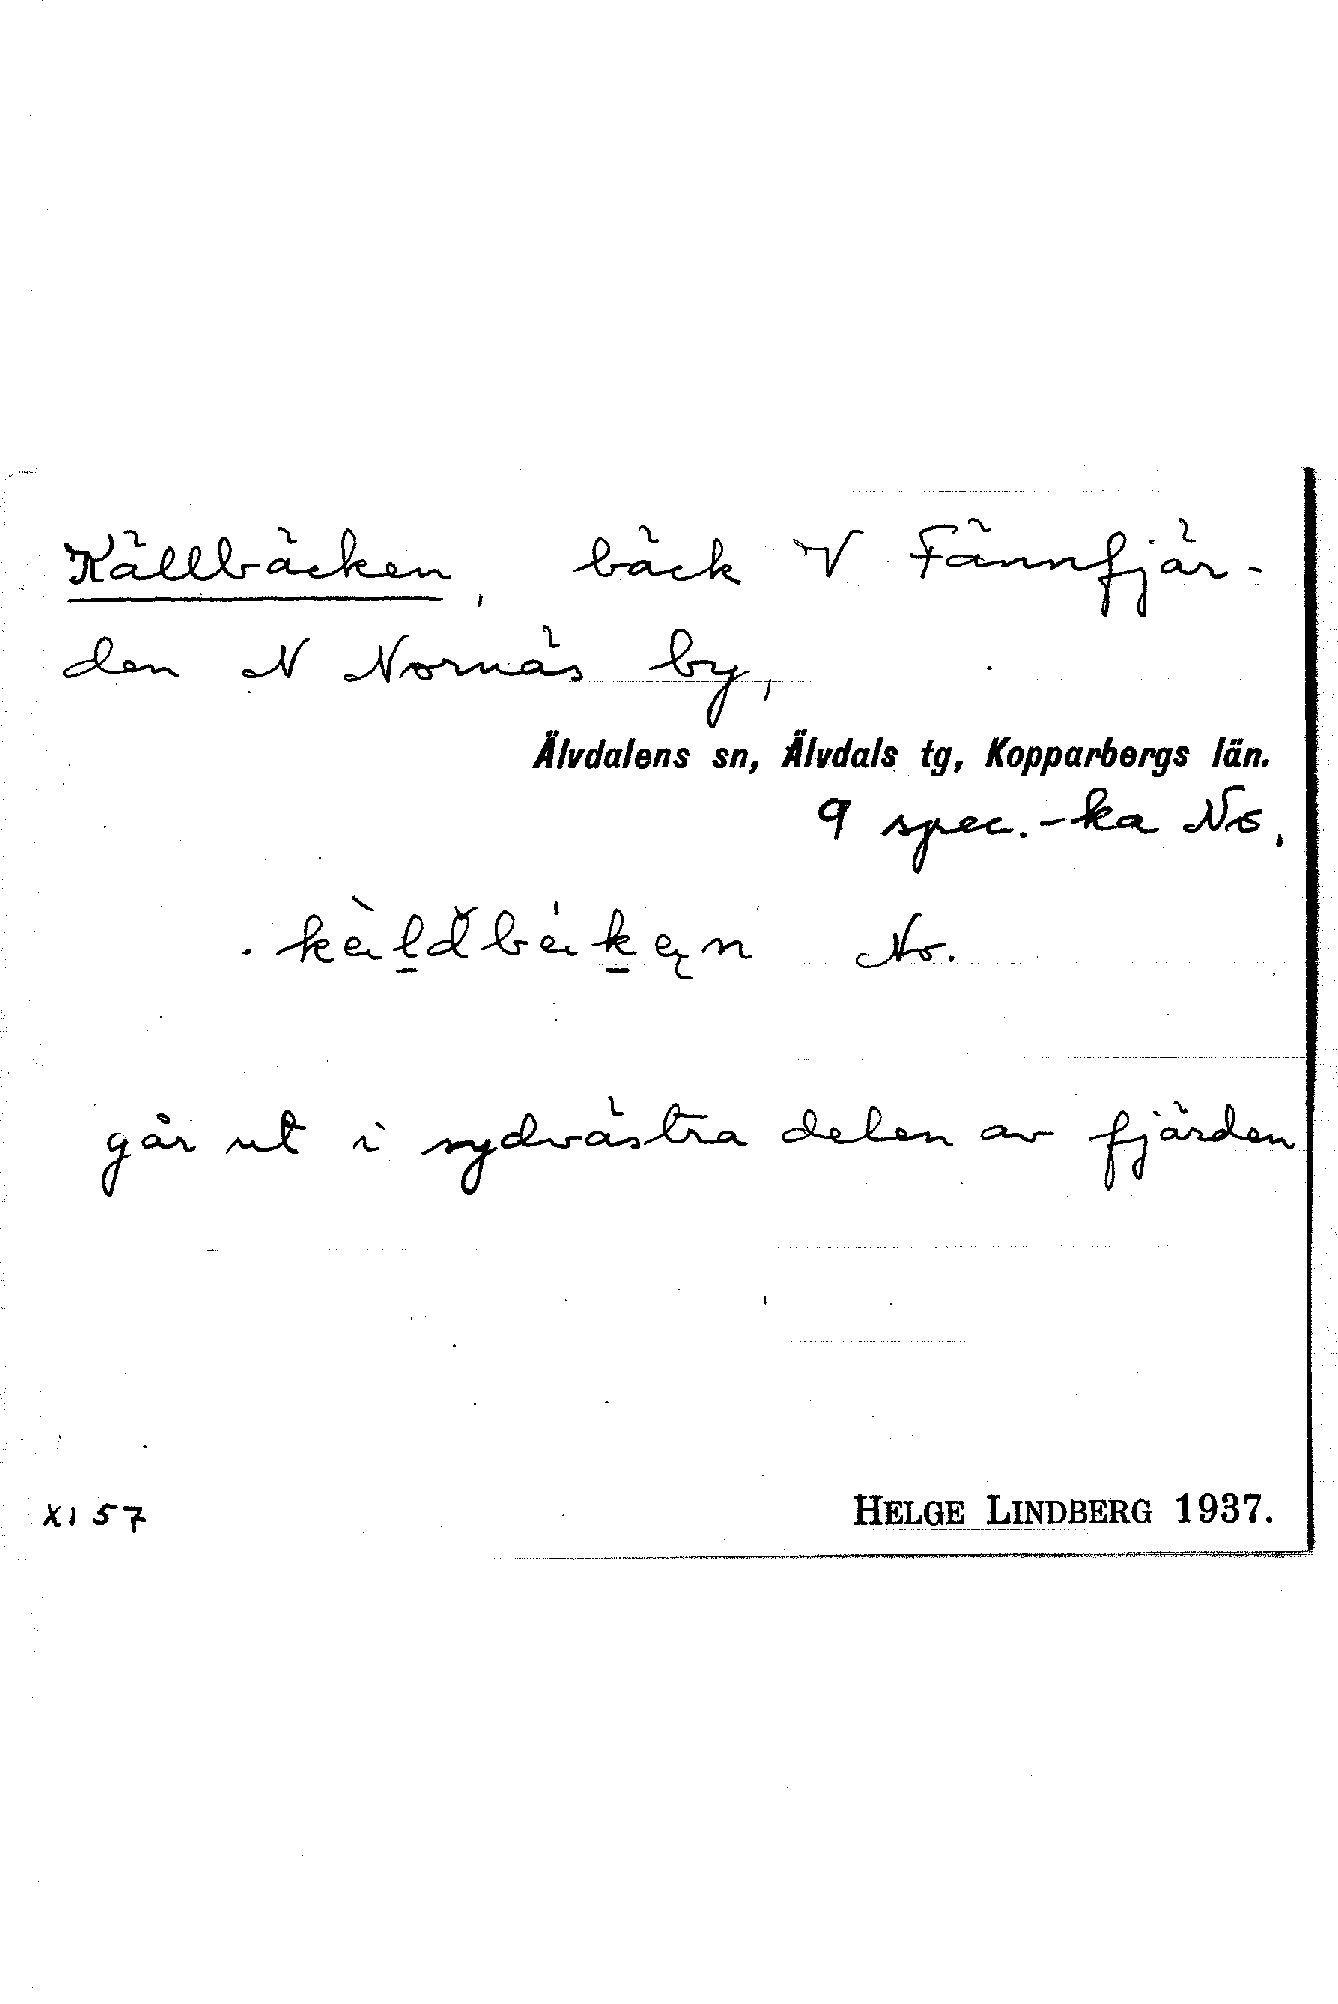 Källbäcken, bäck V Fännfjär-
den N Nornäs by,
Älvdalens sn, Älvdals tg, Kopparbergs län.
9 spec.-ka No.
No.
går ut i sydvästra delen av fjärden
XI 57
HELGE LINDBERG 1937.